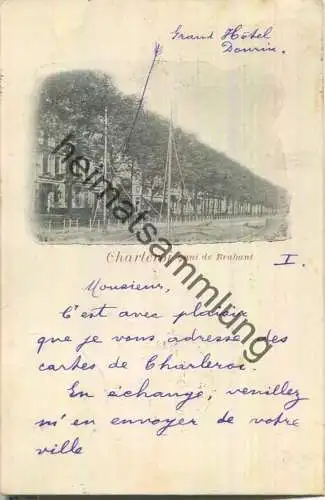 Grand Hôtel
Dourin.
Charleroi Quai de Brabant
I.
Monsieur,
C'est avec plaisir
que je vous adresse des
cartes de Charleroi.
En échange, veuillez
m'en envoyer de votre
ville
heimatsammlung